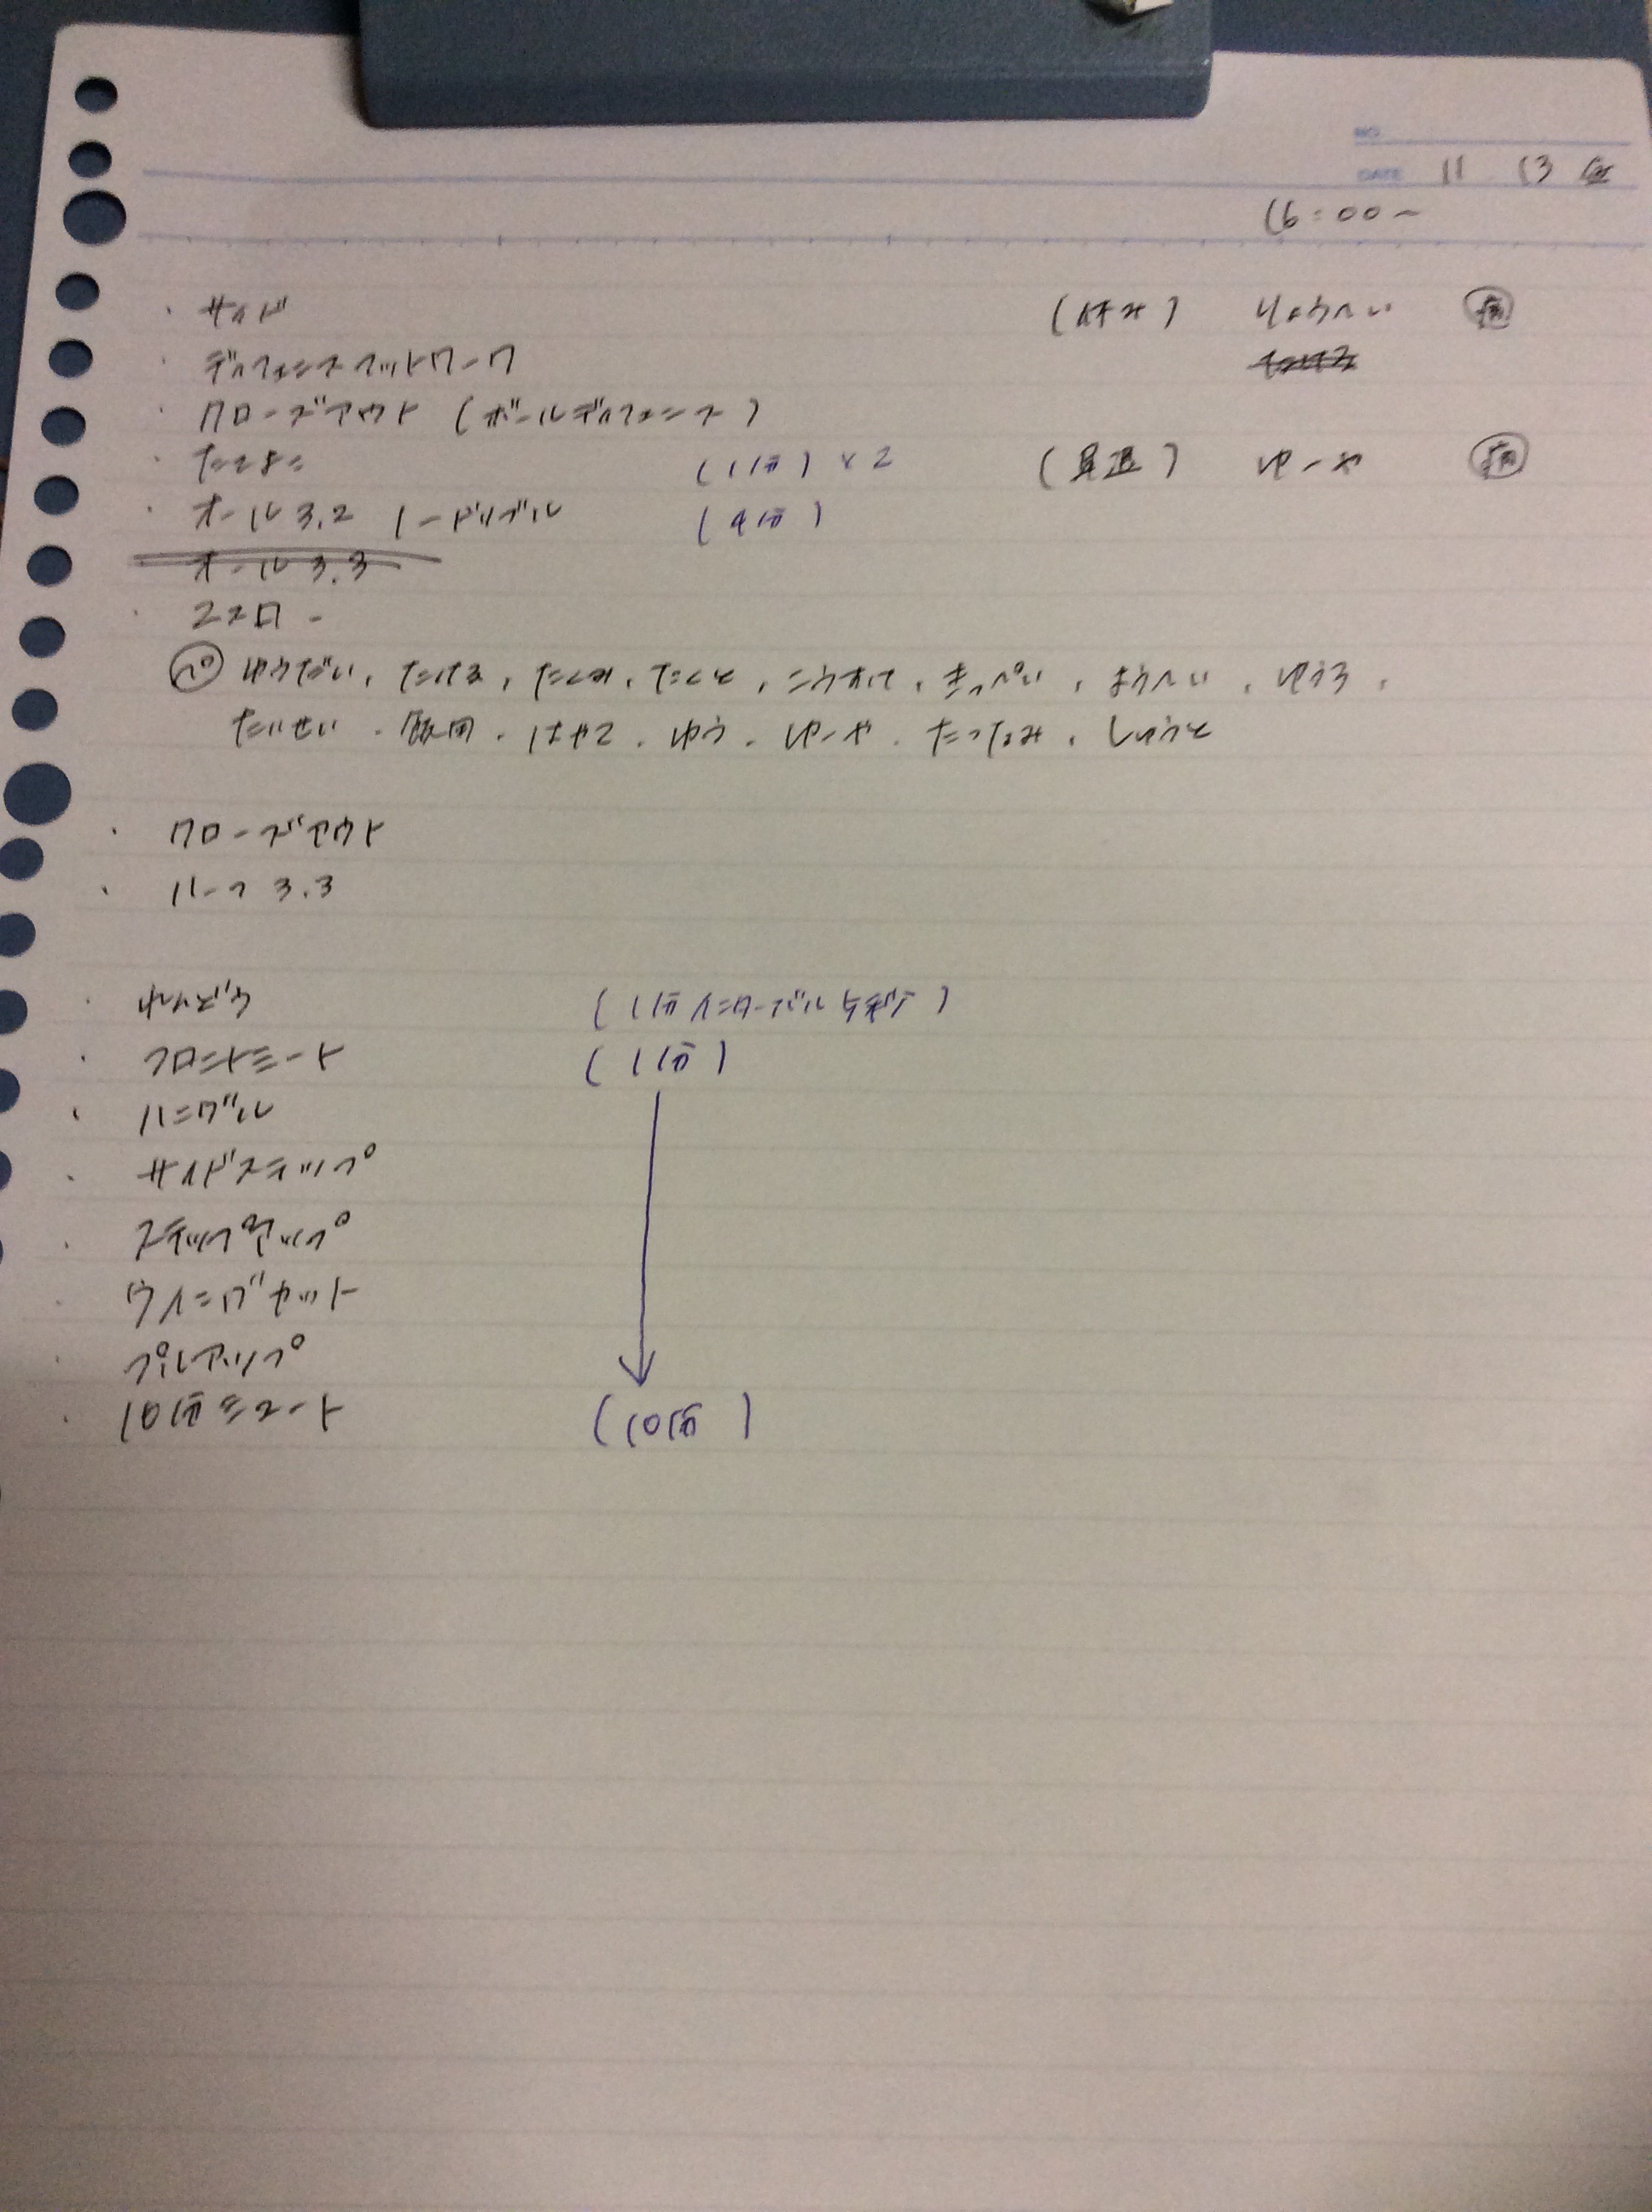 NO.
DATE 11 13 金
16:00~
・サイド (休み) りょうへい 病
・ディフェンスフットワーク
・クローズアウト (ボールディフェンス)
(1分)×2 (早退) ゆーや 病
・オール3.2 ノードリブル (4分)
・オール3.3
ペ ゆうだい, たける, たくみ, たくと, こうすけ, きっぺい, ようへい, ゆうろ,
たいせい・飯田・はやて・ゆう・ゆーや・たつなみ・しゅうと
・クローズアウト
・ハーフ3.3
(1分インターバル
・フロントミート (1分)
・ハンヅル
・サイドステップ
・ステップアップ
・ウイングセット
・プルアップ
・10分シュート (10分)